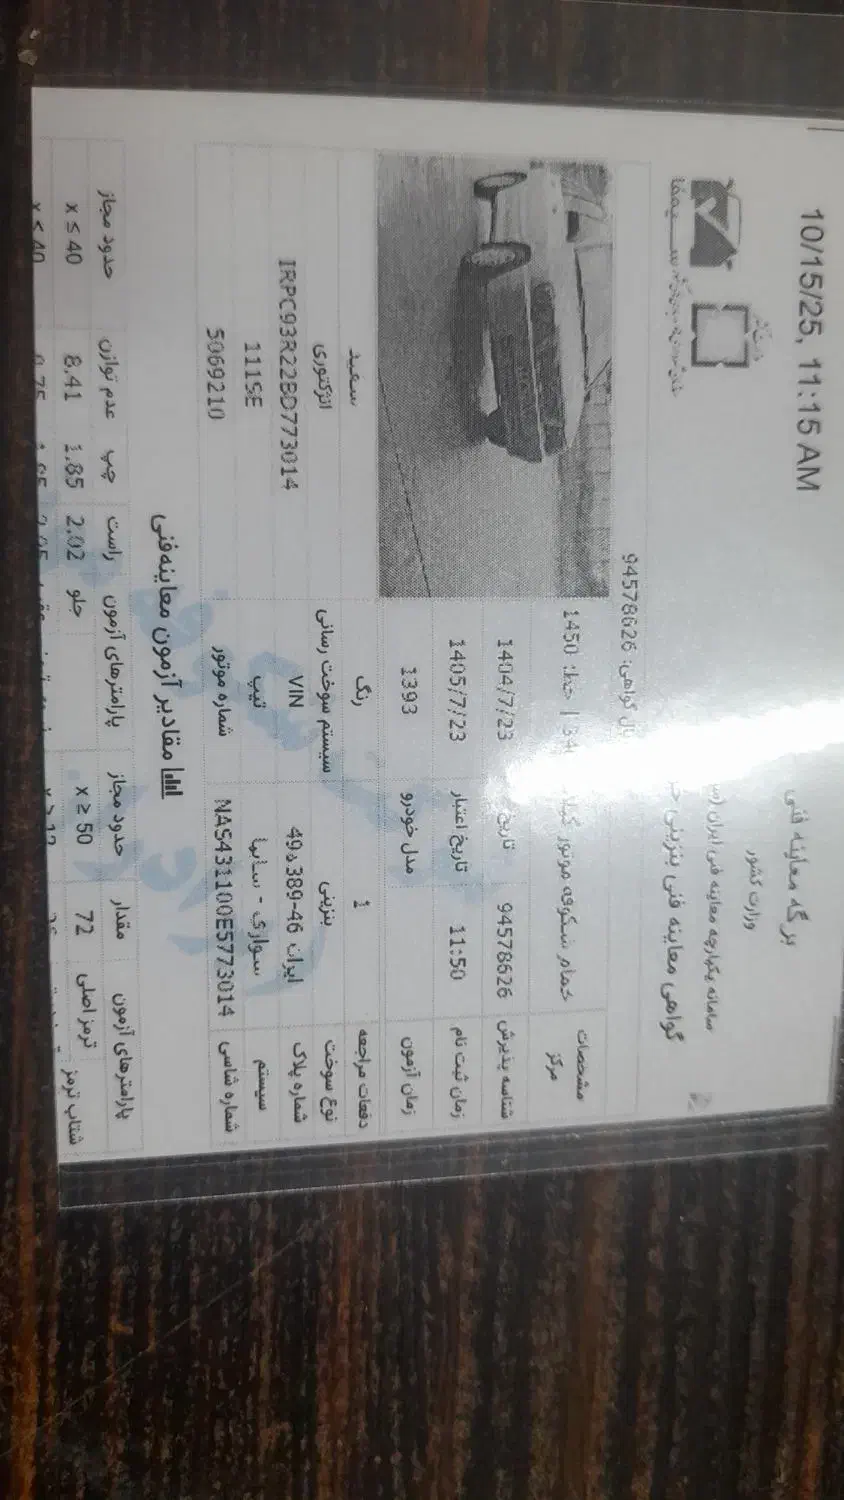 10/15/25, 11:15 AM
برگه معاینه فنی
وزارت کشور
سامانه یکپارچه معاینه فنی ایران
سیمفا
گواهی معاینه فنی بنزینی
گواهی: 94578626
مشخصات مرکز خمام شکوفه موتور | خط: 1450
شناسه پذیرش 94578626 تاریخ 1404/7/23
زمان ثبت نام 11:50 تاریخ اعتبار 1405/7/23
زمان آزمون مدل خودرو 1393
دفعات مراجعه 1 رنگ سفید
نوع سوخت بنزینی سیستم سوخت رسانی انژکتوری
شماره پلاک ایران 46-389 ه 49 VIN IRPC93R22BD773014
سیستم سواری - سایپا تیپ 111SE
شماره شاسی NAS431100E5773014 شماره موتور 5069210
مقادیر آزمون معاینه فنی
پارامترهای آزمون مقدار حدود مجاز پارامترهای آزمون راست چپ عدم توازن حدود مجاز
ترمز اصلی 72 x ≥ 50 جلو 2.02 1.85 8.41 x ≤ 40
شتاب ترمز